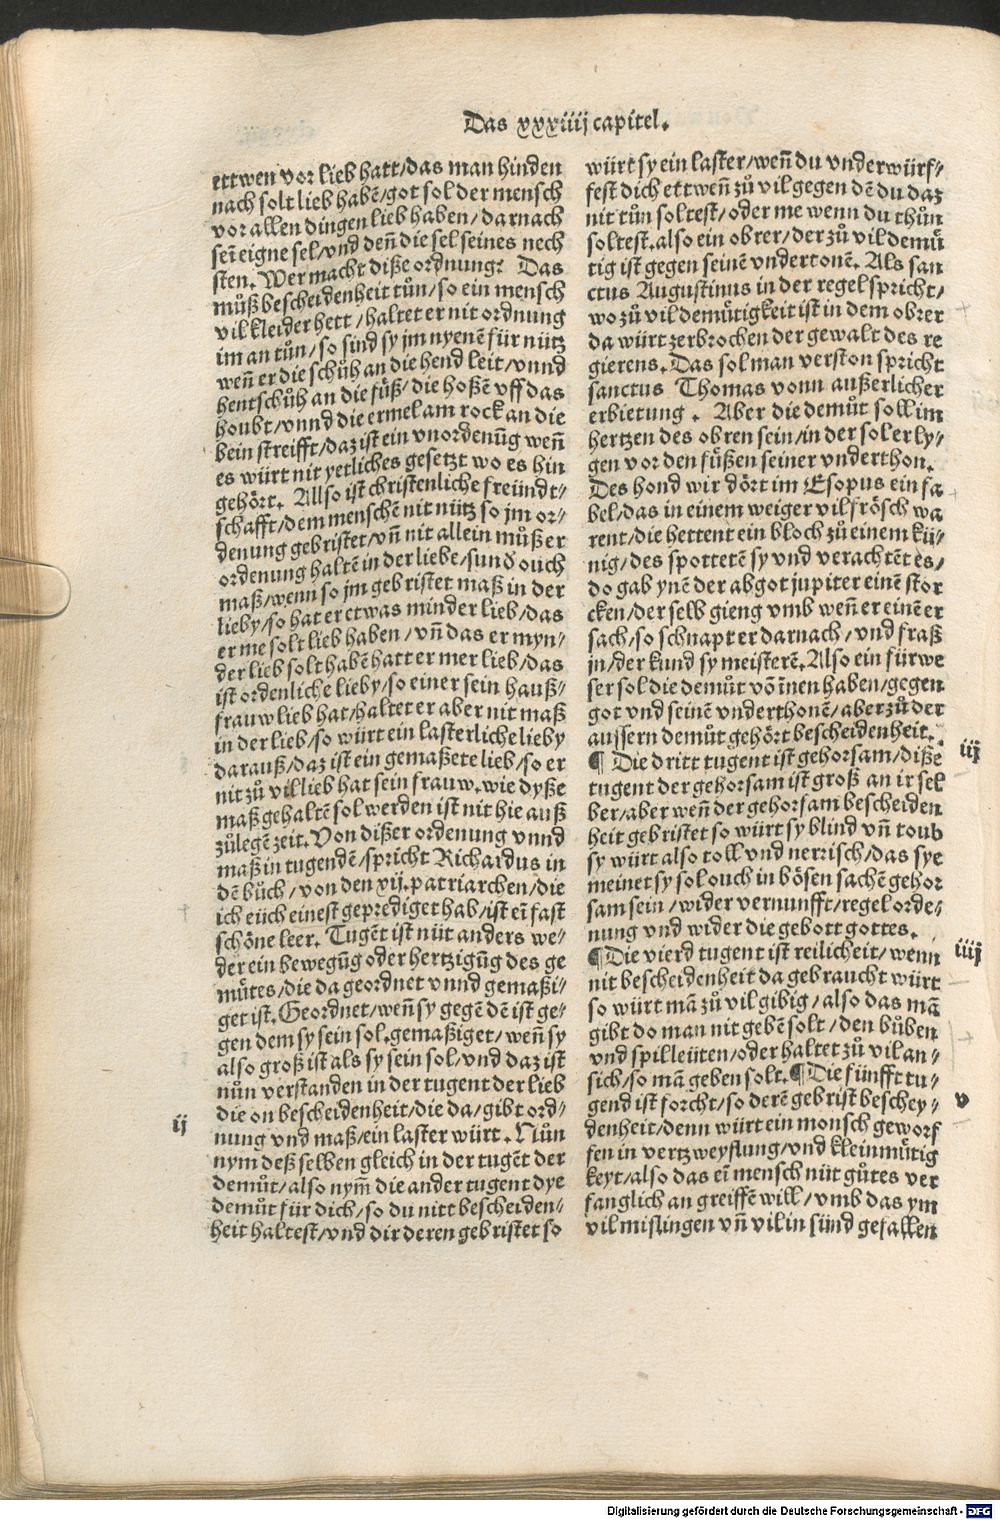 Das xxxiiij capitel.
ettwen vor lieb hatt/das man hinden
nach solt lieb habē/got sol der mensch
vor allen dingen lieb haben/darnach
sei̅ eigne sel/vnd den̅ die sel seines nech
sten. Wer macht diße ordnung? Das
můß bescheidenheit tůn/so ein mensch
vil kleider hett/haltet er nit ordnung
im an tůn/so sind sy jm nyenē für nütz
wen̅ er die schůh an die hend leit/vnnd
hentschůh an die fůß/die hoßē vff das
houbt/vnnd die ermel am rock an die
bein streifft/daz ist ein vnordenūg wen̅
es würt nit yetliches gesetzt wo es hin
gehört. Allso ist christenliche freündt⸗
schafft/dem menschē nit nütz so jm or⸗
denung gebristet/vn̅ nit allein můß er
ordenung haltē in der liebe/sund̕ ouch
maß/wenn so jm gebristet maß in der
lieby/so hat er etwas minder lieb/das
er me solt lieb haben/vn̅ das er myn⸗
der lieb solt habē hatt er mer lieb/das
ist ordenliche lieby/so einer sein hauß⸗
frauw lieb hat/haltet er aber nit maß
in der lieb/so würt ein lasterliche lieby
darauß/daz ist ein gemaßete lieb/so er
nit zů vil lieb hat sein frauw. wie dyße
maß gehaltē sol werden ist nit hie auß
zůlegē zeit. Von dißer ordenung vnnd
maß in tugendē/spricht Richardus in
dē bůch/von den xij. patriarchen/die
ich eüch einest geprediget hab/ist ei̅ fast
schöne leer. Tugēt ist nüt anders we⸗
der ein bewegūg oder hertzigūg des ge
mütes/die da geordnet vnnd gemaßi⸗
get ist. Geordnet/wen̅ sy gegē dē ist ge⸗
gen dem sy sein sol. gemaßiget/wen̅ sy
also groß ist als sy sein sol/vnd daz ist
nůn verstanden in der tugent der lieb
die on bescheidenheit/die da/gibt ord⸗
ij
nung vnd maß/ein laster würt. Nůn
nym deßselben gleich in der tugēt der
demůt/also nym̅ die ander tugent dye
demůt für dich/so du nitt bescheiden⸗
heit haltest/vnd dir deren gebristet so
würt sy ein laster/wen̅ du vnderwürf⸗
fest dich ettwen̅ zů vil gegen dē du daz
nit tůn soltest/oder me wenn du thůn
soltest. also ein obrer/der zů vil demü
tig ist gegen seinē vndertonē. Als san
ctus Augustinus in der regel spricht/
wo zů vil demütigkeit ist in dem obrer
da würt zerbrochen der gewalt des re
gierens. Das sol man verston spricht
sanctus Thomas vonn außerlicher
erbietung. Aber die demůt soll im
hertzen des obren sein/in der sol er ly⸗
gen vor den füßen seiner vnderthon.
Des hond wir dört im Esopus ein fa
bel/das in einem weiger vil frösch wa
rent/die hettent ein bloch zů einem kü⸗
nig/des spottetē sy vnd verachtēt es/
do gab ynē der abgot jupiter einē stor
cken/der selb gieng vmb wen̅ er einē er
sach/so schnapt er darnach/vnd fraß
jn/der kund sy meisterē. Also ein fürwe
ser sol die demůt vō i̅nen haben/gegen
got vnd seinē vnderthonē/aber zů der
aussern demůt gehört bescheidenheit.
iij
¶ Die dritt tugent ist gehorsam/diße
tugent der gehorsam ist groß an ir sel
ber/aber wen̅ der gehorsam bescheiden
heit gebristet so würt sy blind vn̅ toub
sy würt also toll vnd nerrisch/das sye
meinet sy sol ouch in bösen sachē gehor
sam sein/wider vernunfft/regel orde⸗
nung vnd wider die gebott gottes.
iiij
¶ Die vierd tugent ist reilicheit/wenn
nit bescheidenheit da gebraucht würt
so würt mā zů vil gibig/also das mā
gibt do man nit gebē solt/den bůben
vnd spilleüten/oder haltet zů vil an⸗
sich/so mā geben solt. ¶ Die fünfft tu⸗
v
gend ist forcht/so derē gebrist beschey⸗
denheit/denn würt ein monsch geworf
fen in vertzweyflung/vnd kleinmütig
keyt/also das ei̅ mensch nüt gůtes ver
fanglich an greiffē will/vmb das ym
vil mislingen vn̅ vil in sünd gefallen
Digitalisierung gefördert durch die Deutsche Forschungsgemeinschaft - DFG